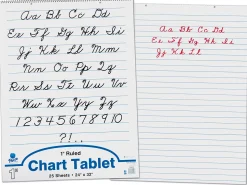 Aa Bb Cc Dd
Ee Ff Gg Hh Ii
Jj Kk Ll Mm
Nn Oo Pp Qq
Rr Ss Tt Uu Vv
Ww Xx Yy Zz
1 2 3 4 5 6 7 8 9 10
?!..
1" Ruled
1"
Chart Tablet
25 Sheets • 24" x 32"
Aa Bb Cc Dd
Ee Ff Gg Hh Ii
Jj Kk Ll